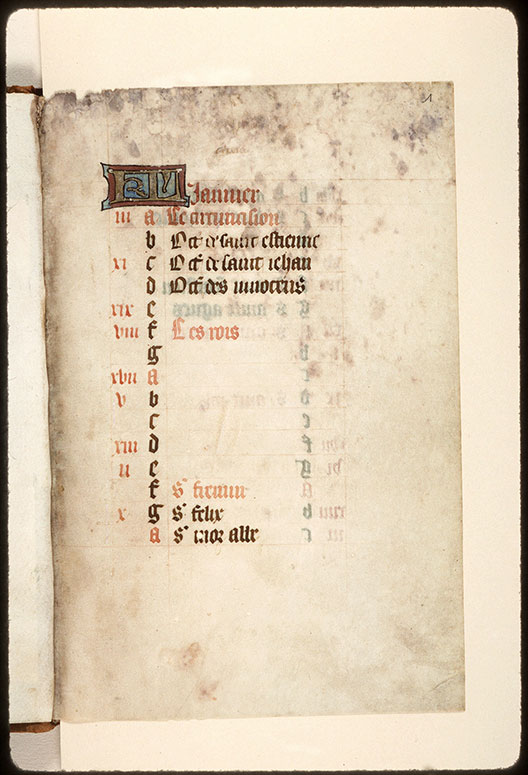 1
KL Januier
iii a Le circuncision
b Oct de saint estienne
xi c Oct de saint iehan
d Oct des innocens
xix e
viii f Les rois
g
xvii A
v b
c
xiii d
ii e
f S firmin
x g S felix
a S mor abbe